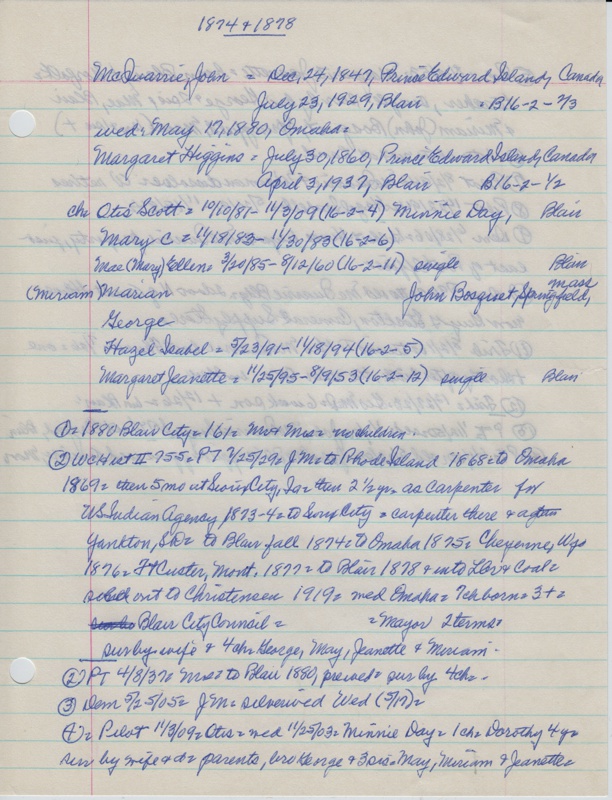 1874 & 1878
McQuarrie, John = Dec, 24, 1847, Prince Edward Island, Canada
July 23, 1929, Blair = B16-2-7/3
wed: May 17, 1880, Omaha =
Margaret Higgins = July 30, 1860, Prince Edward Island, Canada
April 3, 1937, Blair B16-2-1/2
ch: Otis Scott = 10/10/81 - 11/3/09 (16-2-4) Minnie Day, Blair
Mary C = 11/18/83 - 11/30/83 (16-2-6)
Mae (Mary) Ellen = 3/20/85 - 8/12/60 (16-2-11) single Blair
(Miriam) Marian John Bosquet, Springfield, Mass
George
Hazel Isabel = 5/23/91 - 11/18/94 (16-2-5)
Margaret Jeanette = 11/25/95 - 8/9/53 (16-2-12) single Blair
① = 1880 Blair City = 161 = Mr & Mrs = no children.
② WCHist II 755 = PT 7/25/29 = JM = to Rhode Island 1868 = to Omaha
1869 = then 5 mo at Sioux City, Ia = then 2 1/2 yrs as carpenter for
US Indian Agency 1873-4 = to Sioux City = carpenter there &
Yankton, SD = to Blair fall 1874 = to Omaha 1875 = Cheyenne, Wyo
1876 = Ft Custer, Mont. 1877 = to Blair 1878 & into Lbr & Coal =
sold out to Christensen 1919 = wed Omaha = 7 ch born = 3 + =
Blair City Council = = Mayor 2 terms =
sur by wife & 4 ch = George, May, Jeanette & Miriam.
② PT 4/8/37 = Mrs = to Blair 1880, = sur by 4 ch =.
③ Dem 5/25/05 = JM = silver wed Wed (5/17) =
④ = Pilot 11/3/09 = Otis = wed 11/25/03 = Minnie Day = 1 ch = Dorothy 4 yr =
sur by wife & d = parents, bro George & 3 sis = May, Miriam & Jeanette =